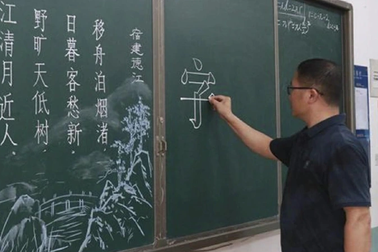 宿建德江
移舟泊烟渚
日暮客愁新.
野旷天低树
江清月近人
字